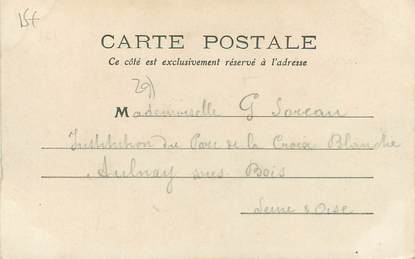 15f
CARTE POSTALE
Ce côté est exclusivement réservé à l'adresse
29)
Mademoiselle G Soreau
Institution du Parc de la Croix Blanche
Aulnay sous Bois
Seine & Oise